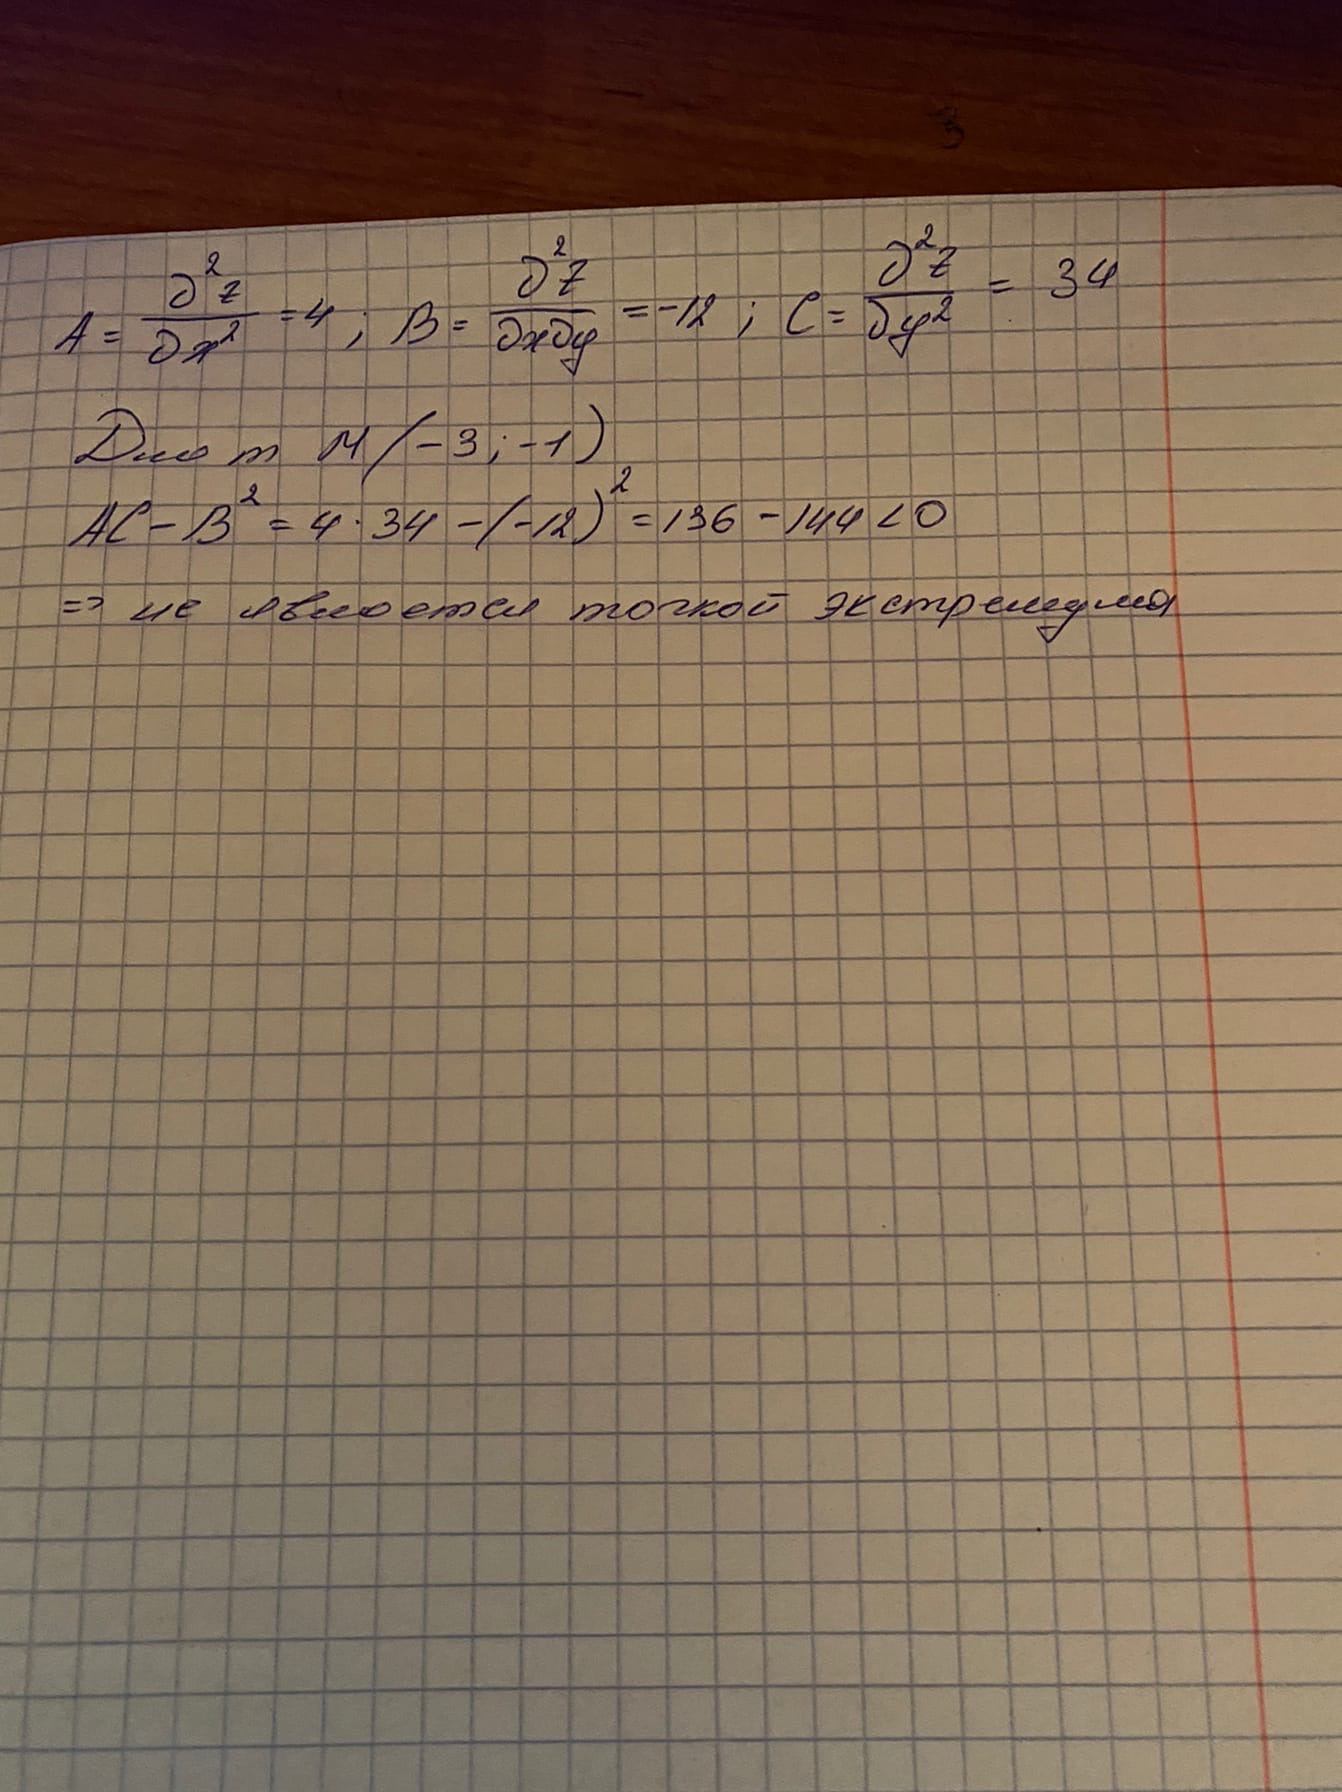 A = ∂²z/∂x² = 4 ; B = ∂²z/∂x∂y = -12 ; C = ∂²z/∂y² = 34
Для т M (-3 ; -1)
AC - B² = 4 · 34 - (-12)² = 136 - 144 < 0
=> не является точкой экстремума